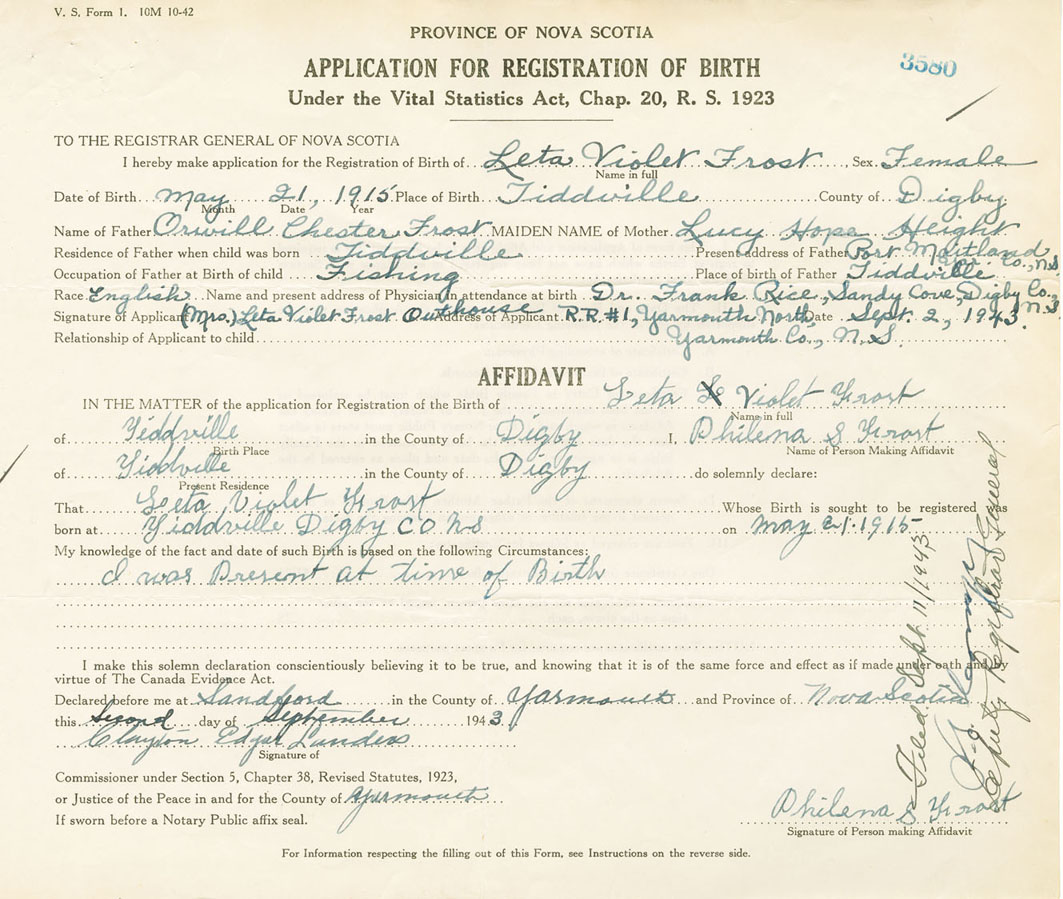 V. S. Form 1. 10M 10-42
PROVINCE OF NOVA SCOTIA
3580
APPLICATION FOR REGISTRATION OF BIRTH
Under the Vital Statistics Act, Chap. 20, R. S. 1923
TO THE REGISTRAR GENERAL OF NOVA SCOTIA
I hereby make application for the Registration of Birth of Leta Violet Frost, Sex Female
Name in full
Date of Birth May 21, 1915 Place of Birth Tiddville County of Digby
Month Date Year
Name of Father Orwill Chester Frost MAIDEN NAME of Mother Lucy Hope Height
Residence of Father when child was born Tiddville Present address of Father Port Maitland
Co., N.S.
Occupation of Father at Birth of child Fishing Place of birth of Father Tiddville
Race English Name and present address of Physician in attendance at birth Dr. Frank Rice, Sandy Cove, Digby Co., N.S.
Signature of Applicant (Mrs.) Leta Violet Frost Outhouse Address of Applicant R.R. #1, Yarmouth North, Date Sept. 2, 1943.
Relationship of Applicant to child Yarmouth Co., N.S.
AFFIDAVIT
IN THE MATTER of the application for Registration of the Birth of Leta Violet Frost
Name in full
of Tiddville in the County of Digby I, Philena S Frost
Birth Place Name of Person Making Affidavit
of Tiddville in the County of Digby do solemnly declare:
Present Residence
That Leta Violet Frost Whose Birth is sought to be registered was
born at Tiddville Digby CO NS on May 21. 1915
My knowledge of the fact and date of such Birth is based on the following Circumstances:
I was Present at time of Birth
I make this solemn declaration conscientiously believing it to be true, and knowing that it is of the same force and effect as if made under oath and by
virtue of The Canada Evidence Act.
Declared before me at Sandford in the County of Yarmouth and Province of Nova Scotia
this second day of September 1943
Clayton Edgar Landers
Signature of
Commissioner under Section 5, Chapter 38, Revised Statutes, 1923,
or Justice of the Peace in and for the County of Yarmouth
If sworn before a Notary Public affix seal.
Philena S Frost
Signature of Person making Affidavit
For Information respecting the filling out of this Form, see Instructions on the reverse side.
Filed Sept. 11/1943
Deputy Registrar General